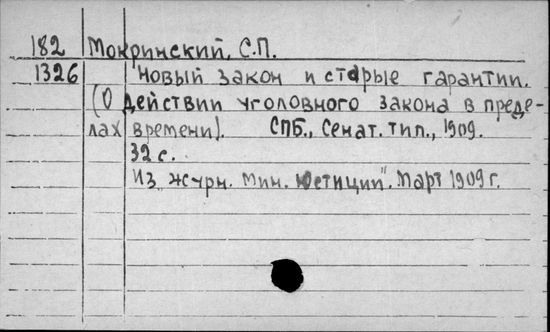 182 Мокринский, С.П.
1326 Новый закон и старые гарантии.
(О действии уголовного закона в преде-
лах времени). СПБ., Сенат. тип., 1909.
32 с.
Из журн. Мин. Юстиции". Март 1909 г.